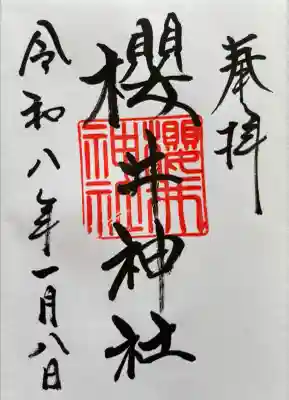 奉拝
櫻井神社
櫻井神社
令和八年一月八日